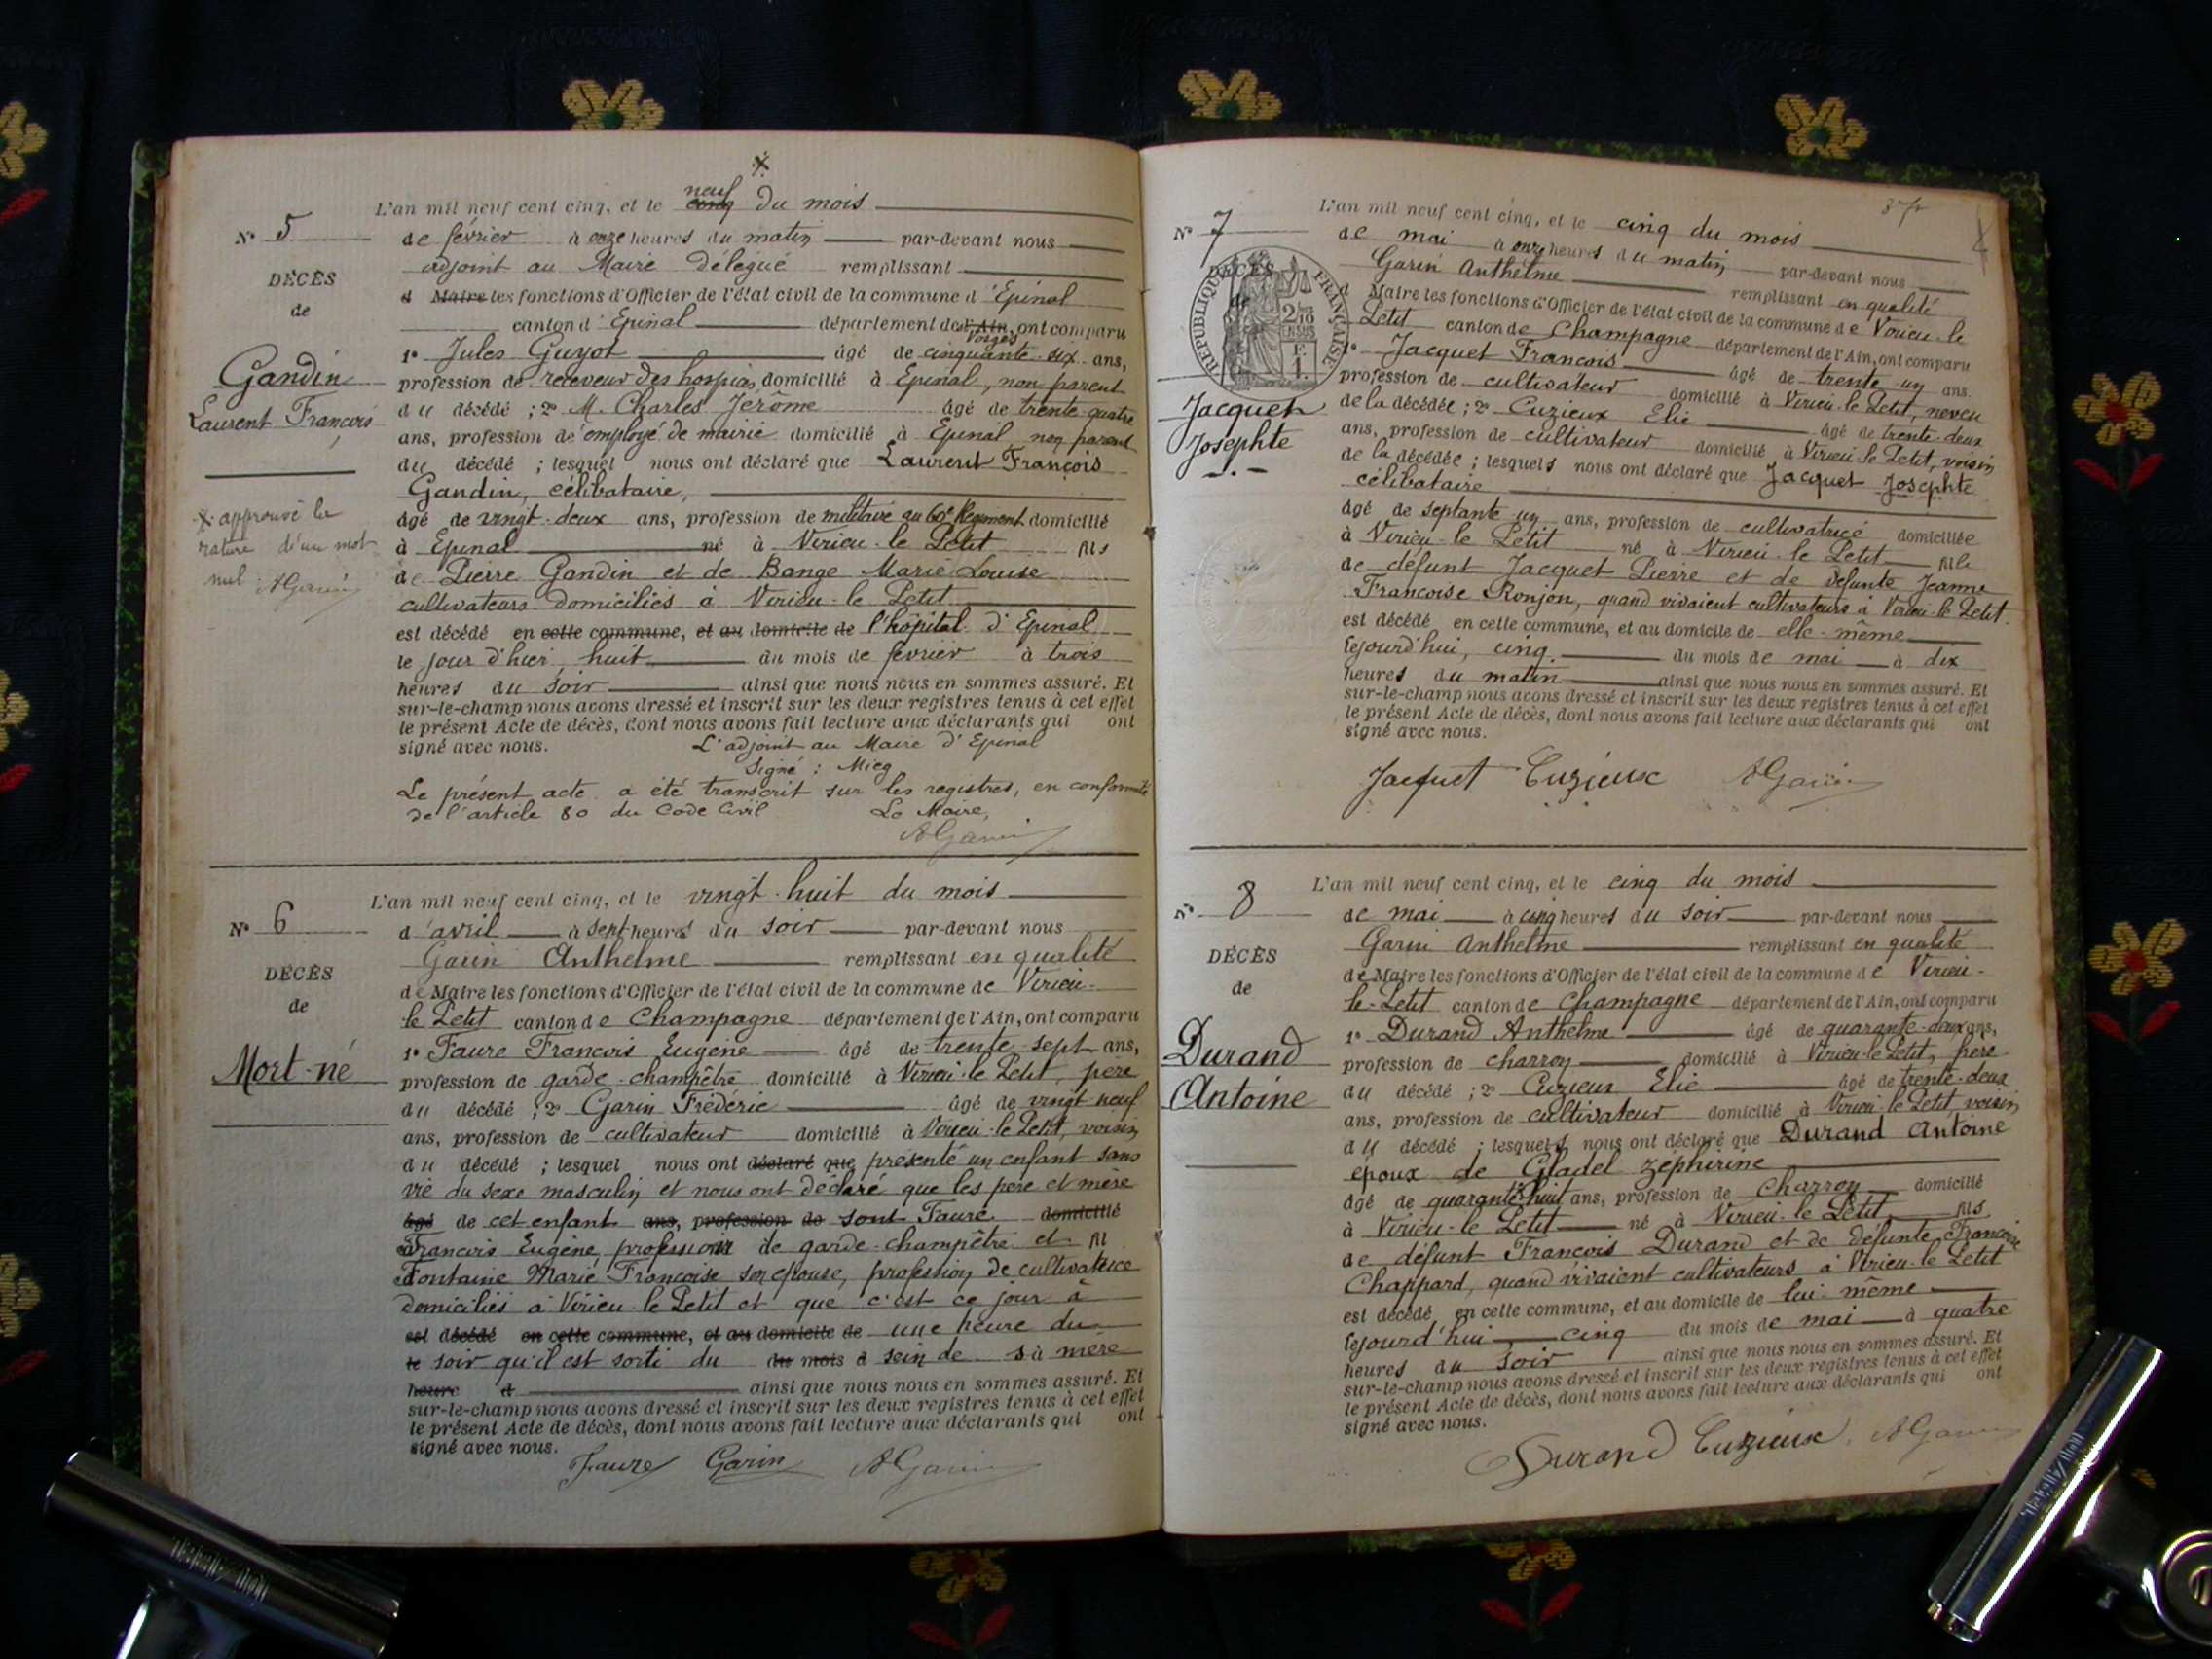 L'an mil neuf cent cinq, et le cinq neuf du mois
N° 5
de février à onze heures du matin par-devant nous
DÉCÈS
adjoint au Maire délégué remplissant
de
d Maire les fonctions d'Officier de l'état civil de la commune d'Epinal
canton d'Epinal département de l'Ain, Vosges ont comparu
Gandin
1° Jules Guyot âgé de cinquante-six ans,
Laurent François
profession de receveur des hospices domicilié à Epinal, non parent
du décédé ; 2° M. Charles Jerôme âgé de trente-quatre
ans, profession d'employé de mairie domicilié à Epinal non parent
du décédé ; lesquel nous ont déclaré que Laurent François
Gandin, célibataire,
+ approuvé la
rature d'un mot
nul AGarin
âgé de vingt-deux ans, profession de militaire au 60e Régiment domicilié
à Epinal né à Virieu-le Petit fils
de Pierre Gandin et de Bange Marie Louise
cultivateurs domiciliés à Virieu-le Petit
est décédé en cette commune, et au domicile de l'hôpital d'Epinal
le jour d'hier huit du mois de février à trois
heures du soir ainsi que nous nous en sommes assuré. Et
sur-le-champ nous avons dressé et inscrit sur les deux registres tenus à cet effet
le présent Acte de décès, dont nous avons fait lecture aux déclarants qui ont
signé avec nous. L'adjoint au Maire d'Epinal
Signé : Mieg
Le présent acte a été transcrit sur les registres, en conformité
de l'article 80 du Code Civil Le Maire,
AGarin
L'an mil neuf cent cinq, et le vingt-huit du mois
N° 6
d'avril à sept heures du soir par-devant nous
DÉCÈS
Garin Anthelme remplissant en qualité
de
de Maire les fonctions d'Officier de l'état civil de la commune de Virieu-
le Petit canton de Champagne département de l'Ain, ont comparu
Mort-né
1° Faure François Eugène âgé de trente-sept ans,
profession de garde-champêtre domicilié à Virieu-le Petit, père
du décédé ; 2° Garin Frédéric âgé de vingt neuf
ans, profession de cultivateur domicilié à Virieu-le Petit, voisin
du décédé ; lesquel nous ont déclaré que présenté un enfant sans
vie du sexe masculin et nous ont déclaré que les père et mère
âgé de cet enfant ans, profession de sont Faure domicilié
François Eugène, profession de garde-champêtre et fil
Fontaine Marie Françoise son épouse, profession de cultivatrice
domiciliés à Virieu-le Petit et que c'est ce jour à
est décédé en cette commune, et au domicile de une heure du
le soir qu'il est sorti du du mois à sein de sa mère
heure d ainsi que nous nous en sommes assuré. Et
sur-le-champ nous avons dressé et inscrit sur les deux registres tenus à cet effet
le présent Acte de décès, dont nous avons fait lecture aux déclarants qui ont
signé avec nous.
Faure Garin AGarin
L'an mil neuf cent cinq, et le cinq du mois
N° 7
de mai à onze heures du matin par-devant nous
DÉCÈS
de
RÉPUBLIQUE FRANÇAISE
2/10 EN SUS
Garin Anthelme remplissant en qualité
d Maire les fonctions d'Officier de l'état civil de la commune de Virieu-le
Petit canton de Champagne département de l'Ain, ont comparu
1° Jacquet François âgé de trente-un ans.
profession de cultivateur domicilié à Virieu-le Petit, neveu
Jacquet
Josephte
de la décédée ; 2° Cuzieux Elie âgé de trente-deux
ans, profession de cultivateur domicilié à Virieu-le Petit, voisin
de la décédée ; lesquels nous ont déclaré que Jacquet Josephte
célibataire
âgé de septante-un ans, profession de cultivatrice domiciliée
à Virieu-le Petit né à Virieu-le Petit fille
de défunt Jacquet Pierre et de défunte Jeanne
Françoise Ronjon, quand vivaient cultivateurs à Virieu-le Petit.
est décédé en cette commune, et au domicile de elle-même
lejourd'hui, cinq du mois de mai à dix
heures du matin ainsi que nous nous en sommes assuré. Et
sur-le-champ nous avons dressé et inscrit sur les deux registres tenus à cet effet
le présent Acte de décès, dont nous avons fait lecture aux déclarants qui ont
signé avec nous.
Jacquet Cuzieux AGarin
L'an mil neuf cent cinq, et le cinq du mois
N° 8
de mai à cinq heures du soir par-devant nous
DÉCÈS
Garin Anthelme remplissant en qualité
de
de Maire les fonctions d'Officier de l'état civil de la commune de Virieu-
le-Petit canton de Champagne département de l'Ain, ont comparu
Durand
Antoine
1° Durand Anthelme âgé de quarante-deux ans,
profession de charron domicilié à Virieu-le Petit, frère
du décédé ; 2° Cuzieux Elie âgé de trente-deux
ans, profession de cultivateur domicilié à Virieu-le Petit, voisin
du décédé ; lesquels nous ont déclaré que Durand Antoine
époux de Gladel Zéphirine
âgé de quarante-huit ans, profession de charron domicilié
à Virieu-le Petit né à Virieu-le Petit fils
de défunt François Durand et de défunte Françoise
Chappard, quand vivaient cultivateurs à Virieu-le Petit
est décédé en cette commune, et au domicile de lui-même
lejourd'hui cinq du mois de mai à quatre
heures du soir ainsi que nous nous en sommes assuré. Et
sur-le-champ nous avons dressé et inscrit sur les deux registres tenus à cet effet
le présent Acte de décès, dont nous avons fait lecture aux déclarants qui ont
signé avec nous.
Durand Cuzieux AGarin